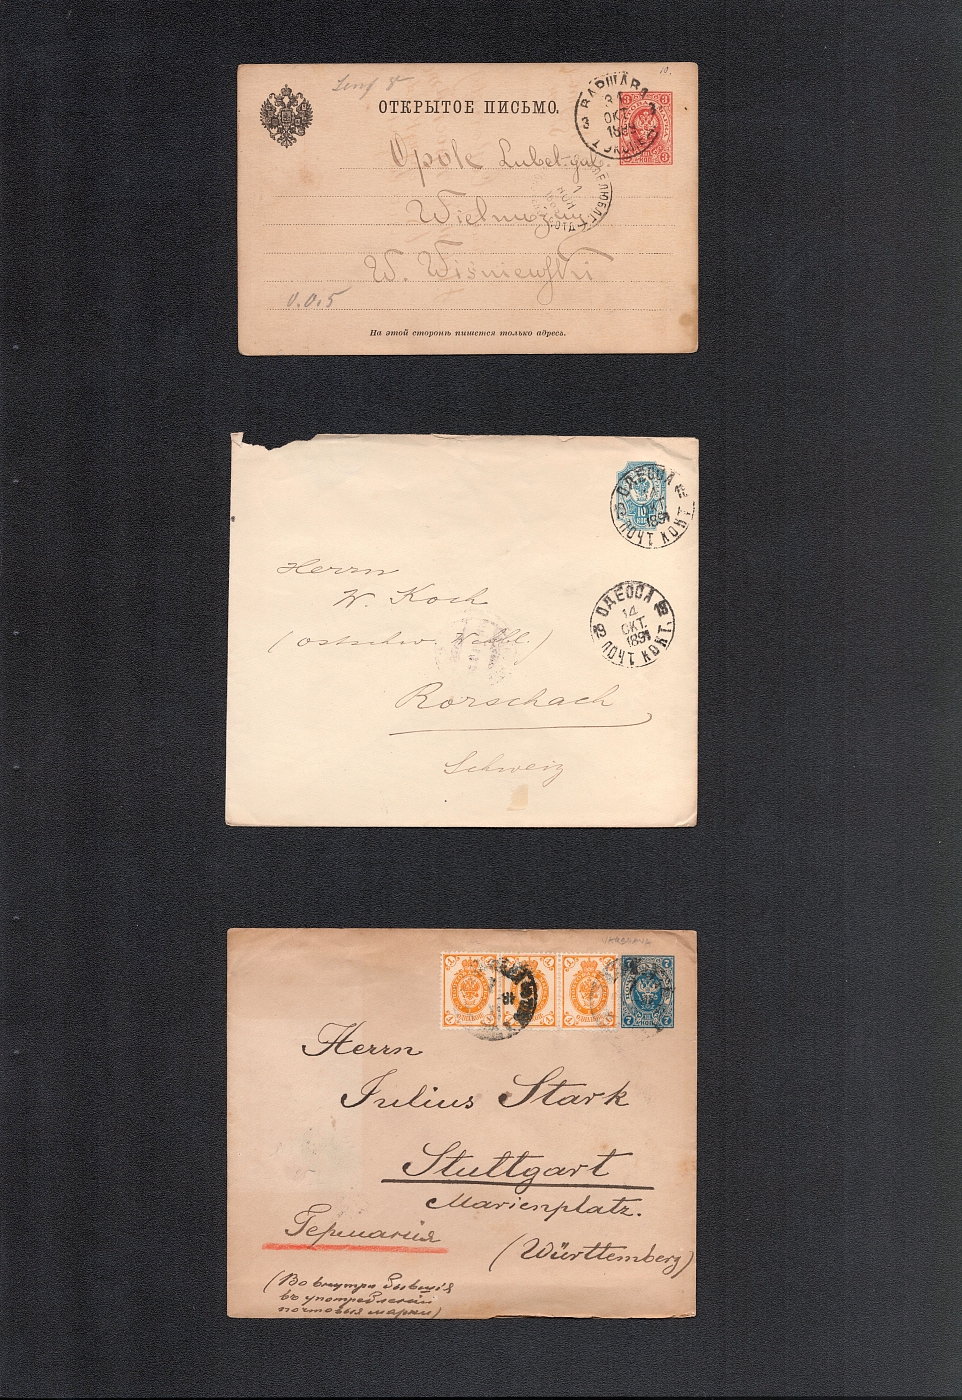 10.
ОТКРЫТОЕ ПИСЬМО.
ВАРШАВА
31
ОКТ.
1889
3
3
3
Opole Lubel-gub.
1
НОЯ
ОТД.
Wielmożny
W. Wiśniewski
0.0.5
На этой сторонѣ пишется только адресъ.
ОДЕССА
10
ОКТ.
1891
ПОЧТ. КОНТ.
Herrn
W. Koch
ОДЕССА
14
ОКТ.
1891
ПОЧТ. КОНТ.
Rorschach
Schweiz
1
1
1
7
7
7
Herrn
Julius Stark
Stuttgart
Marienplatz.
Германія
(Württemberg)
(Во внутри бывшія
въ употребленіи
почтовыя марки)